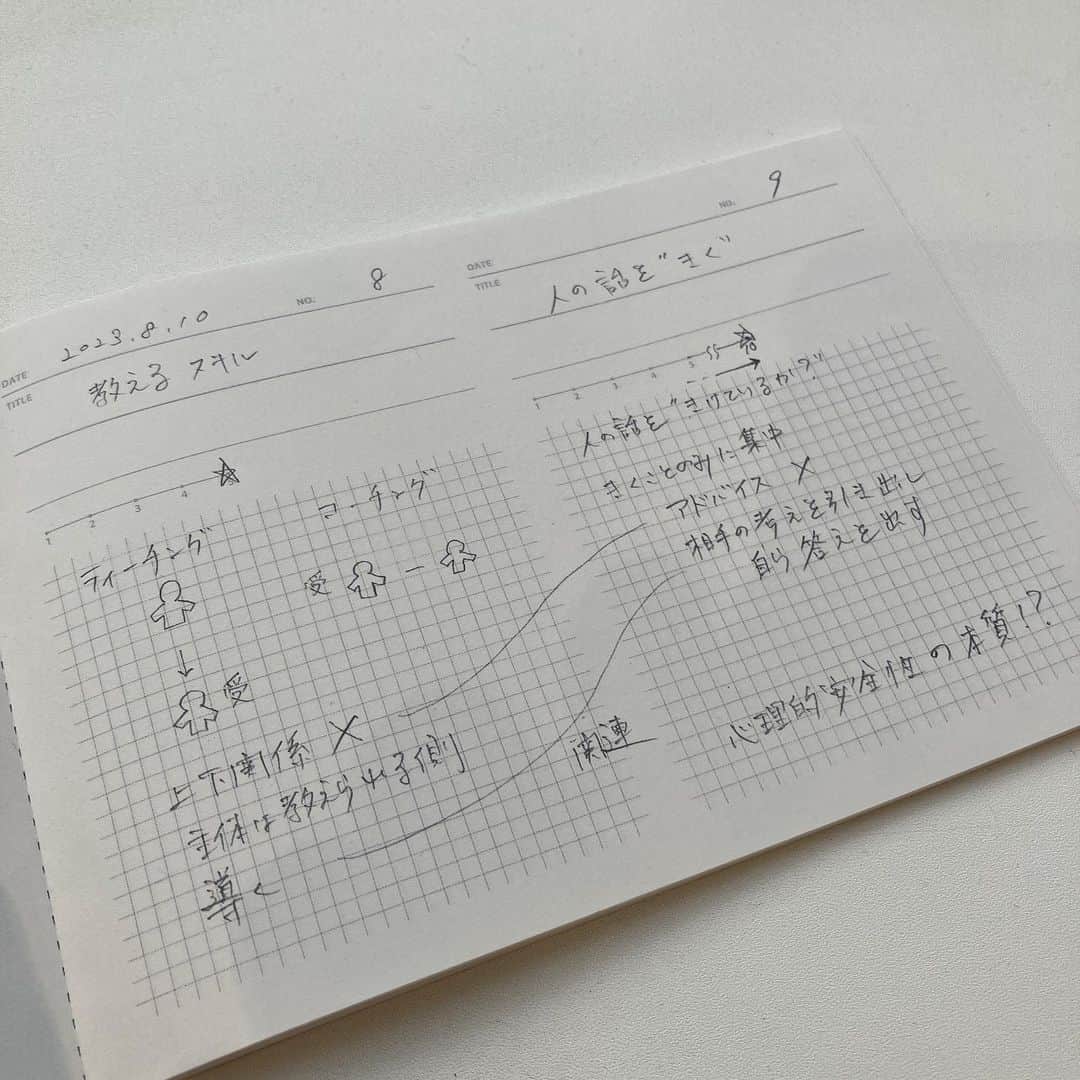 DATE 2023.8.10 NO. 8
TITLE 教えるスキル
1 2 3 4
ティーチング コーチング
受
受
上下関係 ×
主体は教えられる側
導く
関連
DATE NO. 9
TITLE 人の話を"きく"
1 2 3 4 5 55
人の話を"きけているか?"
きくことのみに集中
アドバイス ×
相手の考えを引き出し
自ら答えを出す
心理的安全性の本質!?